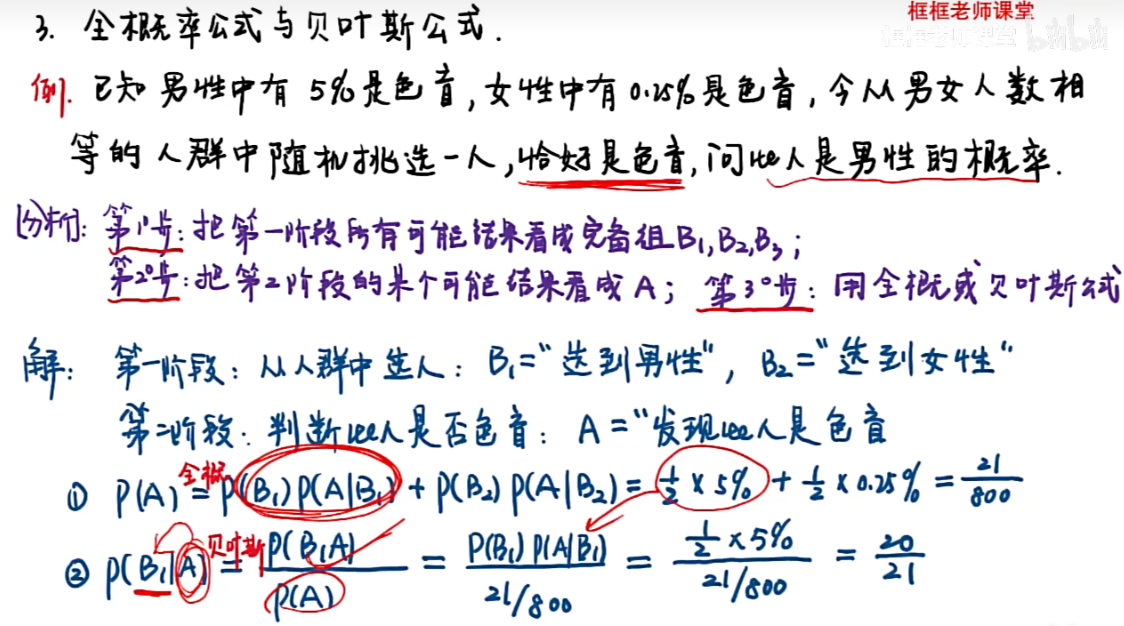 框框老师课堂
3. 全概率公式与贝叶斯公式.
例. 已知男性中有 5% 是色盲, 女性中有 0.25% 是色盲, 今从男女人数相
等的人群中随机挑选一人, 恰好是色盲, 问此人是男性的概率.
[分析]: 第1°步: 把第一阶段所有可能结果看成完备组B₁,B₂,B₃;
第2°步: 把第2阶段的某个可能结果看成A; 第3°步: 用全概或贝叶斯公式
解: 第一阶段: 从人群中选人: B₁="选到男性", B₂="选到女性"
第二阶段: 判断此人是否色盲: A="发现此人是色盲
① P(A) 全概= P(B₁)P(A|B₁) + P(B₂)P(A|B₂) = 1/2 × 5% + 1/2 × 0.25% = 21/800
② P(B₁|A) 贝叶斯= P(B₁A)/P(A) = P(B₁)P(A|B₁)/21/800 = 1/2 × 5%/21/800 = 20/21